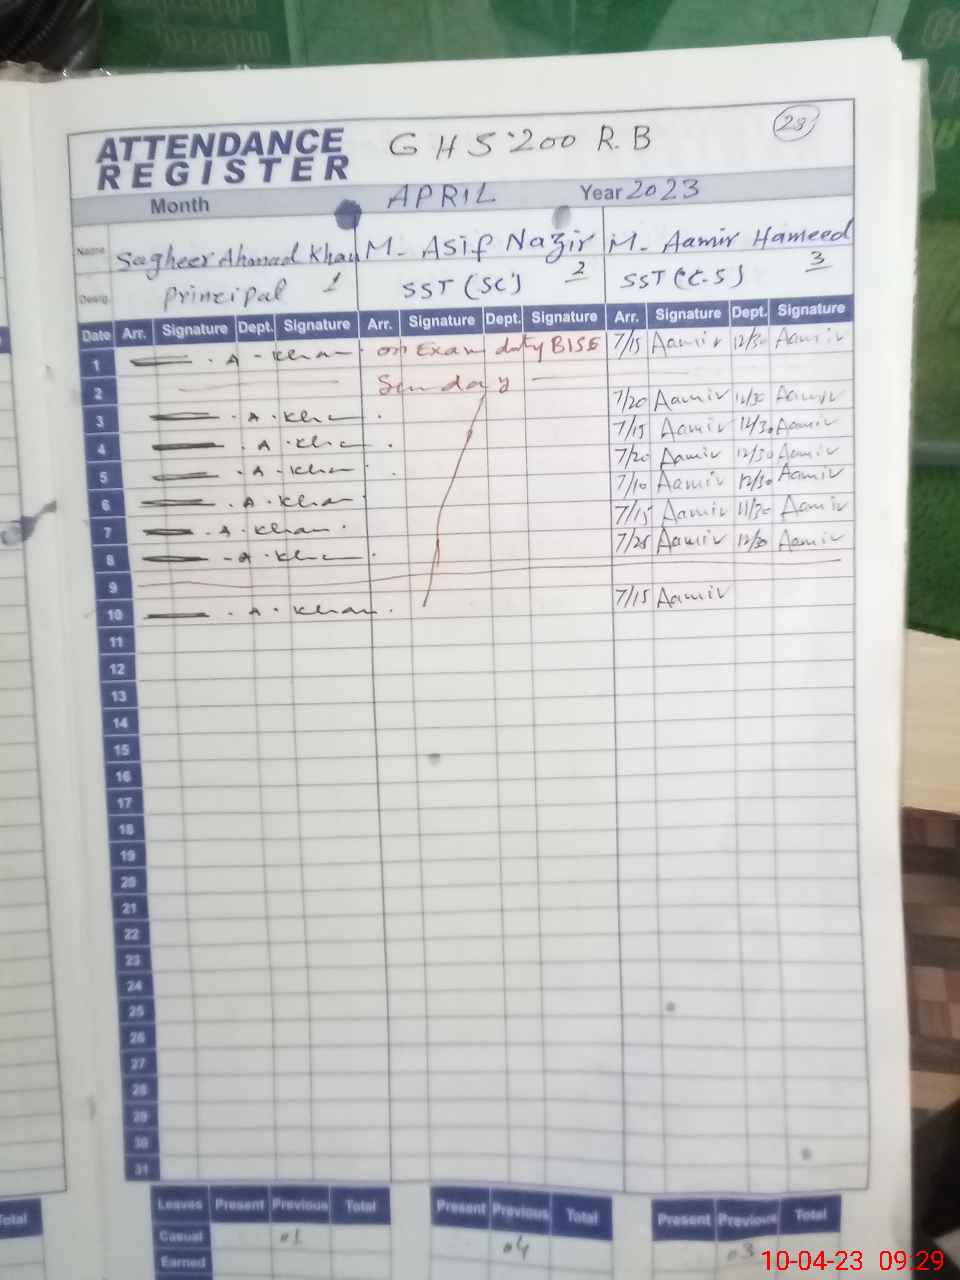 ATTENDANCE REGISTER G H S 200 R.B 23
Month APRIL Year 2023
Name Sagheer Ahmad Khan M. Asif Nazir M. Aamir Hameed
Desig. Principal 1 SST (SC) 2 SST (C.S) 3
Date Arr. Signature Dept. Signature Arr. Signature Dept. Signature Arr. Signature Dept. Signature
1 A. Khan on Exam duty BISE 7/15 Aamir 12/30 Aamir
2 Sunday
3 A. Kha 7/20 Aamir 12/30 Aamir
4 A. Kha 7/15 Aamir 12/30 Aamir
5 A. Kha 7/20 Aamir 12/30 Aamir
6 A. Khan 7/10 Aamir 12/30 Aamir
7 A. Khan 7/15 Aamir 11/30 Aamir
8 A. Kha 7/25 Aamir 12/30 Aamir
9
10 A. Khan 7/15 Aamir
11
12
13
14
15
16
17
18
19
20
21
22
23
24
25
26
27
28
29
30
31
Leaves Present Previous Total Present Previous Total Present Previous Total
Casual 01 04 03
Earned
10-04-23 09:29